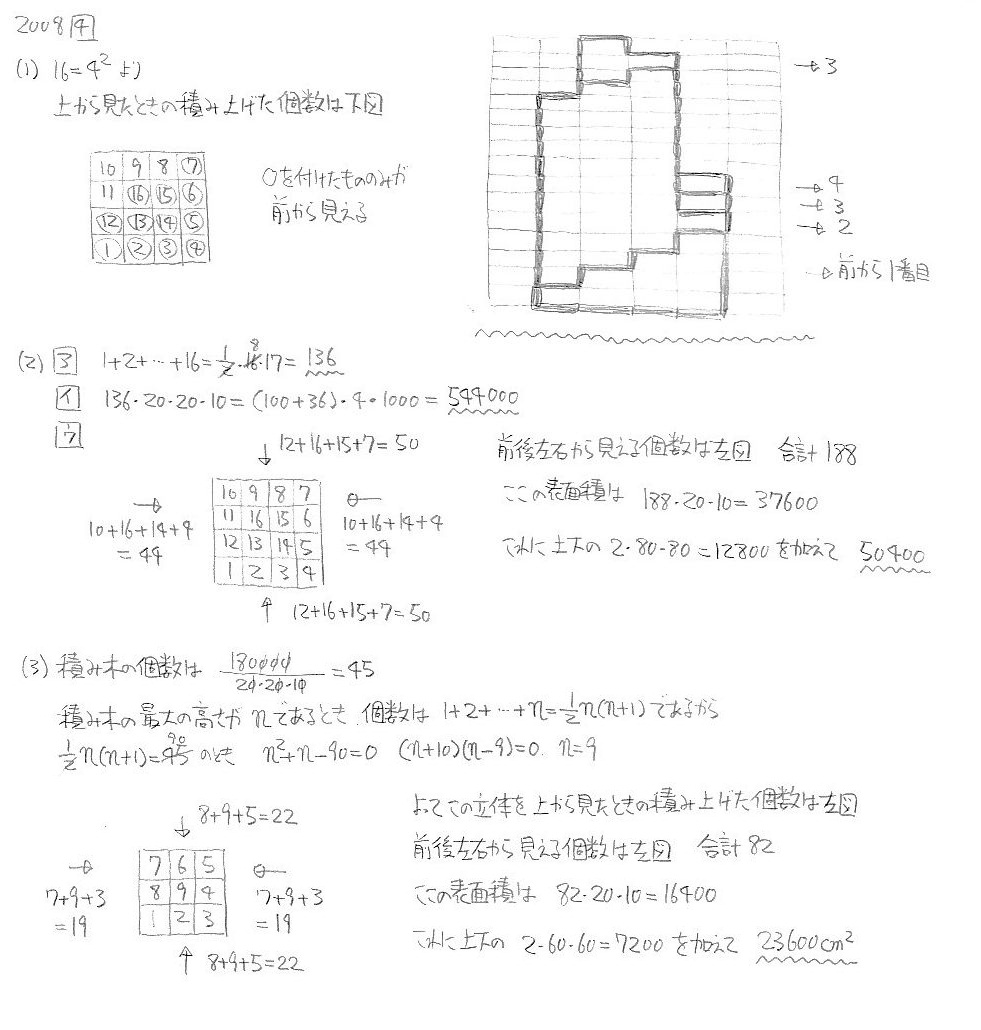 2008 4
(1) 16=4² より
上から見たときの積み上げた個数は下図
10 9 8 ⑦
11 ⑯ ⑮ ⑥
⑫ ⑬ ⑭ ⑤
① ② ③ ④
○を付けたもののみが
前から見える
→3
→4
→3
→2
→前から1番目
(2) ア 1+2+…+16=1/2·16·17=136
8
イ 136·20·20·10=(100+36)·4·1000=544000
ウ
↓ 12+16+15+7=50
→
10+16+14+4
=44
10 9 8 7
11 16 15 6
12 13 14 5
1 2 3 4
←
10+16+14+4
=44
↑ 12+16+15+7=50
前後左右から見える個数は左図 合計188
ここの表面積は 188·20·10=37600
これに上下の 2·80·80=12800を加えて 50400
(3) 積み木の個数は 180000/20·20·10=45
積み木の最大の高さが nであるとき 個数は 1+2+…+n=1/2n(n+1)であるから
90
1/2n(n+1)=45 のとき n²+n-90=0 (n+10)(n-9)=0. n=9
↓ 8+9+5=22
→
7+9+3
=19
7 6 5
8 9 4
1 2 3
←
7+9+3
=19
↑ 8+9+5=22
よってこの立体を上から見たときの積み上げた個数は左図
前後左右から見える個数は左図 合計82
ここの表面積は 82·20·10=16400
これに上下の 2·60·60=7200 を加えて 23600cm²